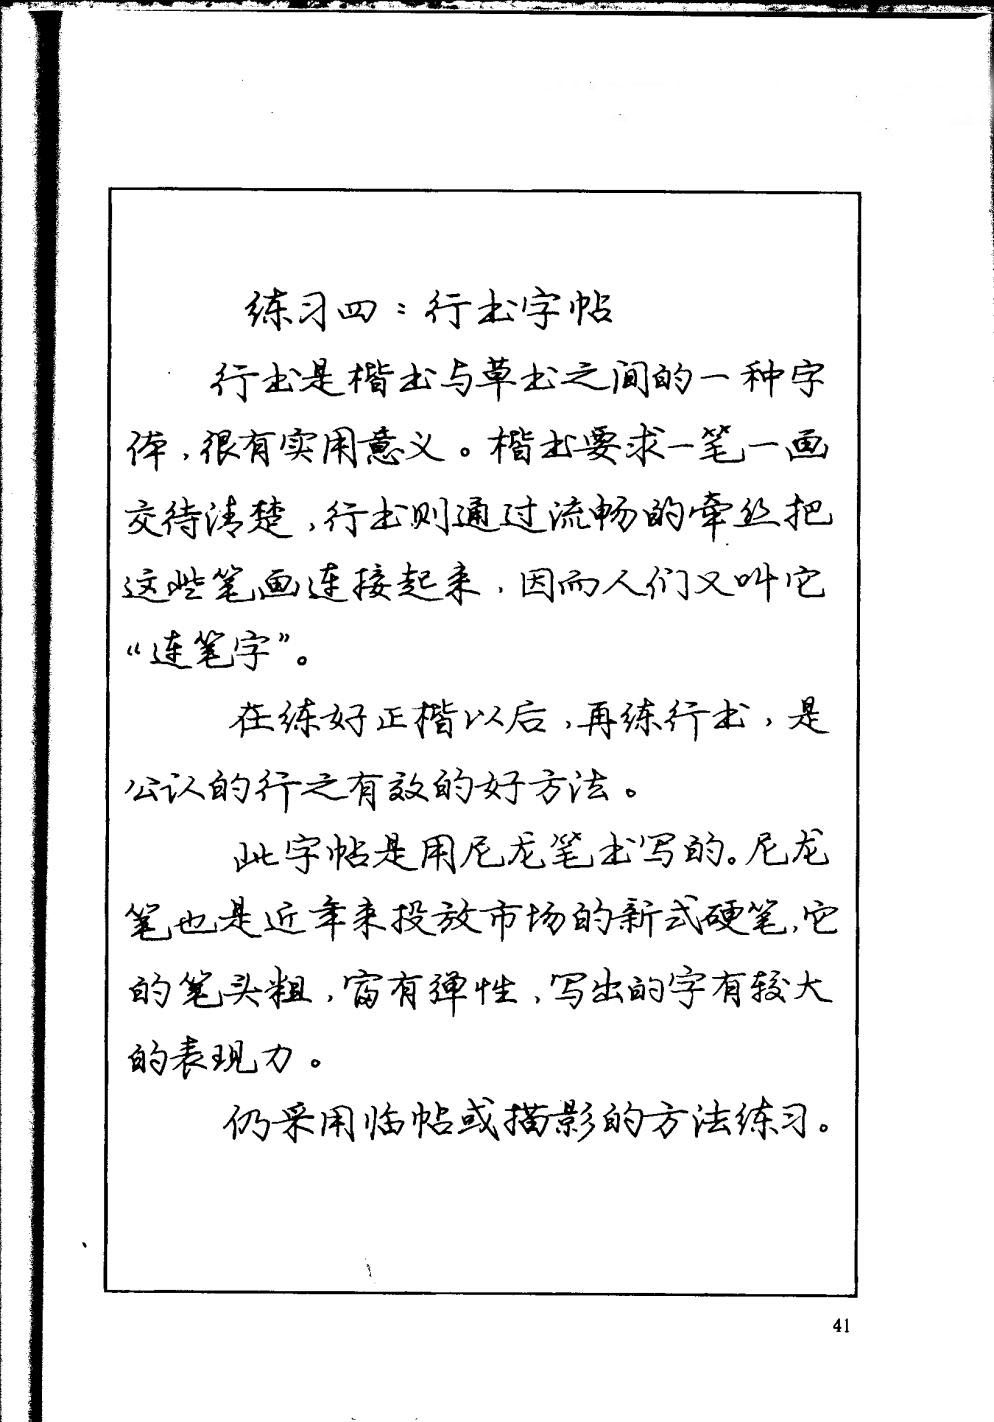 练习四：行书字帖
行书是楷书与草书之间的一种字
体，很有实用意义。楷书要求一笔一画
交待清楚，行书则通过流畅的牵丝把
这些笔画连接起来，因而人们又叫它
“连笔字”。
在练好正楷以后，再练行书，是
公认的行之有效的好方法。
此字帖是用尼龙笔书写的。尼龙
笔也是近年来投放市场的新式硬笔，它
的笔头粗，富有弹性，写出的字有较大
的表现力。
仍采用临帖或描影的方法练习。
41